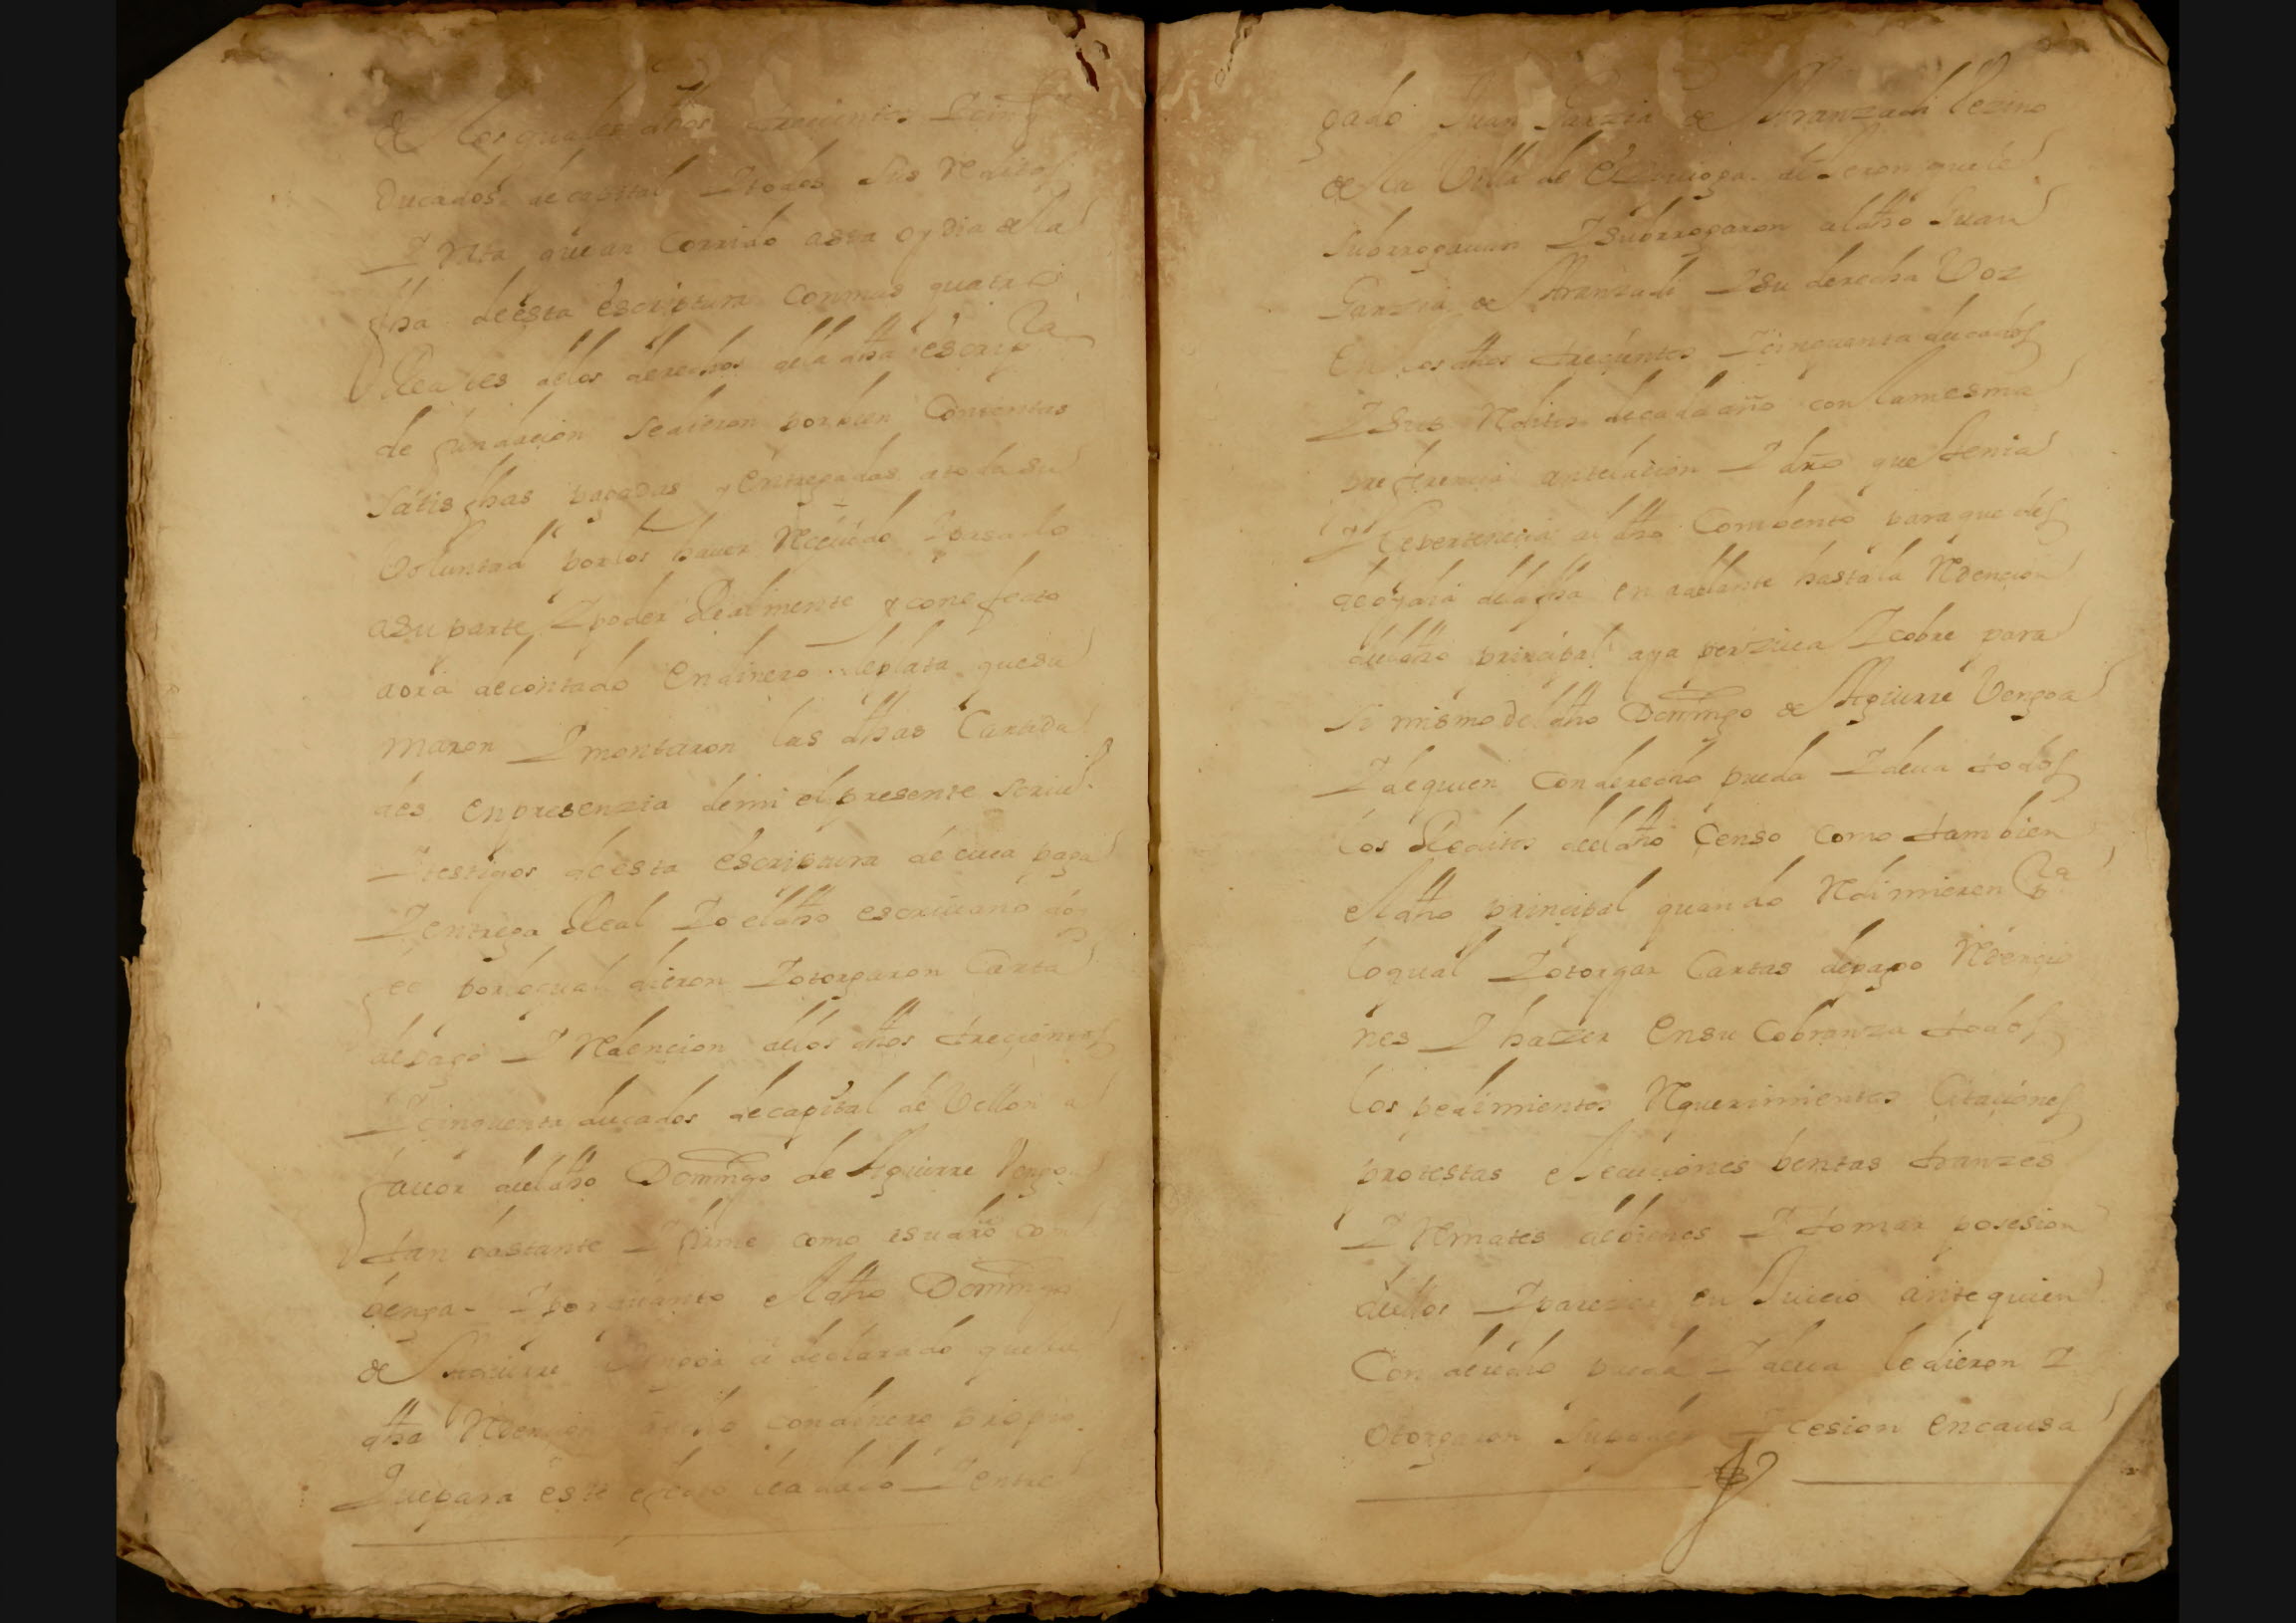 de los quales dhos trecientos y cinq.ta
ducados de capital y todos sus reditos
y rata que an corrido asta oy dia de la
fha de esta escriptura con mas quatro
Reales de los derechos de la dha escrip.ra
de fundacion se dieron por bien contentas
satisfhas pagadas y entregadas a toda su
voluntad por los hauer reçiuido y pasado
a su parte y poder Realmente y con efecto
aora de contado en dinero de plata que su
maron y montaron las dhas cantida
des en presenzia de mi el presente scriu.o
y testigos de esta escriptura de cuia paga
y entrega Real yo el dho escriuano doy
fee por lo qual dieron y otorgaron carta
de pago y redencion de los dhos trecientos
y cinquenta ducados de capital de vellon a
fauor del dho Domingo de Aguirre Vengoa
tan bastante y firme como a su dro con
benga - y por quanto el dho Domingo
de Aguirre Vengoa a declarado que la
dha redencion con dinero propio
que para este efecto le a dado y entre
gado Juan Garzia de Aranzadi vezino
de la Villa de Ezquioga dixeron que le
subrrogauan y subrrogaron al dho Juan
Garzia de Aranzadi y su derecha voz
en los dhos trecientos y cinquenta ducados
y sus reditos de cada año con la mesma
preferencia antelacion y dro que tenia
y le pertenecia al dho combento para que des
de oy dia de la fha en adelante hasta la redencion
del dho principal aya perziua y cobre para
si mismo del dho Domingo de Aguirre Vengoa
y de quien con derecho pueda y deua todos
los Reditos del dho censo como tambien
el dho principal quando redimieren p.a
lo qual y otorgar cartas de pago redencio
nes y hazer en su cobranza todos
los pedimientos requerimientos citaciones
protestas execuciones bentas tranzes
y remates de bienes y tomar posesion
de ellos y parezer en Juicio ante quien
con derecho pueda y deua le dieron y
otorgaron su poder y cesion en causa